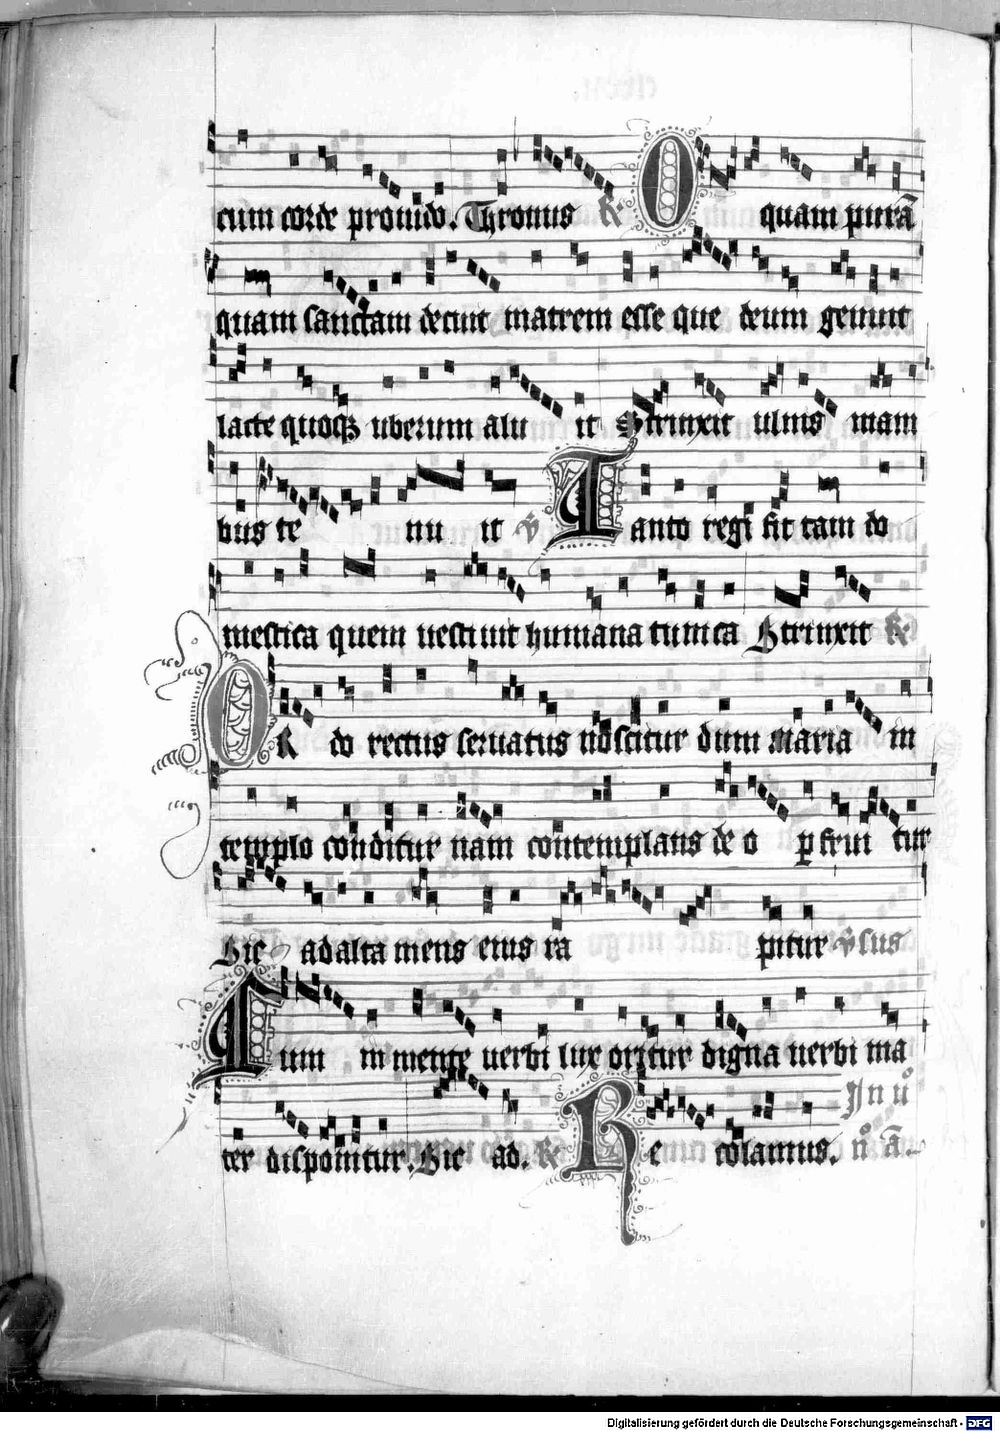 cum corde prouido. Thronus R. O quam purā
quam sanctam decuit matrem esse que deum genuit
lacte quoqz uberum alu it Strinxit ulnis mam
bus te nu it V Tanto regi fit tam do
mestica quem uestiuit humana tunica Strinxit R.
OR do rectus seruatus noscitur dum maria in
templo conditur nam contemplans de o p frui tur
Sic ad alta mens eius ra pitur vsus
Cum in mente uerbi lux oritur digna uerbi ma
In u
ter disponitur. Sic ad. R. Re colamus. n a.
Digitalisierung gefördert durch die Deutsche Forschungsgemeinschaft - DFG